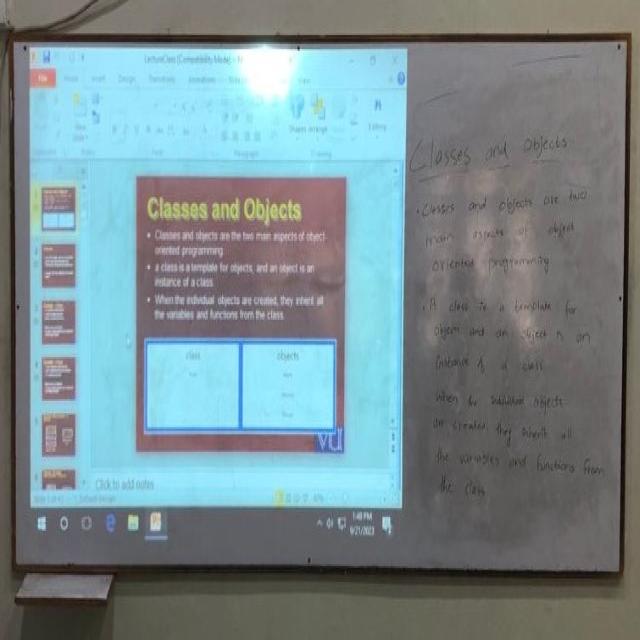 LectureClass [Compatibility Mode] -
File
Home Insert Design Transitions Animations
View
Shapes Arrange
Editing
Paragraph
Drawing
Classes and Objects
• Classes and objects are the two main aspects of object-
oriented programming.
• a class is a template for objects, and an object is an
instance of a class.
• When the individual objects are created, they inherit all
the variables and functions from the class.
class
objects
vu
Click to add notes
1:48 PM
9/21/2023
Classes and Objects
• Classes and objects are two
main aspects of object
oriented programming
• A class is a template for
objects and an object is an
instance of a class
When the individual objects
are created they inherit all
the variables and functions from
the class